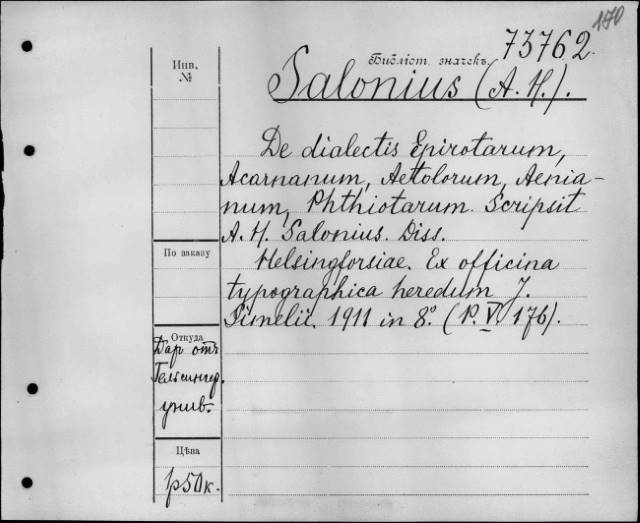 170
73762
Библіот. значекъ.
Инв.
№
Salonius (A. H.).
De dialectis Epirotarum,
Acarnanum, Aetolorum, Aenia-
num, Phthiotarum. Scripsit
A. H. Salonius. Diss.
По заказу
Helsingforsiae. Ex officina
typographica heredum J.
Simelii. 1911 in 8º. (P. V. 176).
Откуда
Даръ отъ
Гельсингф.
унив.
Цѣва
1р50к.